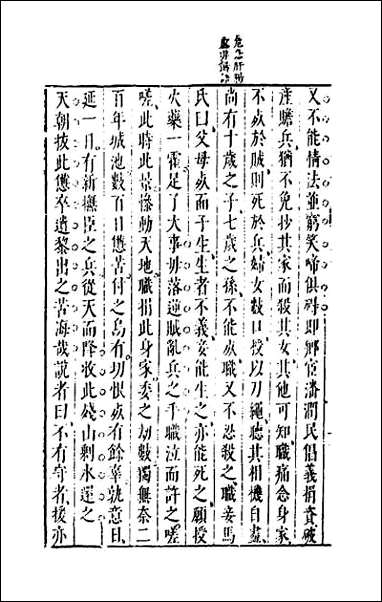 危急肝腸
又不能情法並窮笑啼俱碍即鄉宦潘潤民倡義捐貲破
產贍兵猶不免抄其家而殺其女其他可知職痛念身家
不死於賊則死於兵婦女數口授以刀繩聽其相機自盡
尚有十歲之子七歲之孫不能死職又不忍殺之職妾馬
氏曰父母死而子生生者不義妾能生之亦能死之願授
火藥一霍足了大事毋落逆賊亂兵之手職泣而許之嗟
嗟此時此景慘動天地職捐此身家委之劫數獨無奈二
百年城池數百日憊苦付之烏有切恨死有餘辜孰意日
延一日有新撫臣之兵從天而降收此殘山剩水還之
天朝拔此憊卒遺黎出之苦海哉說者曰不有守者援亦